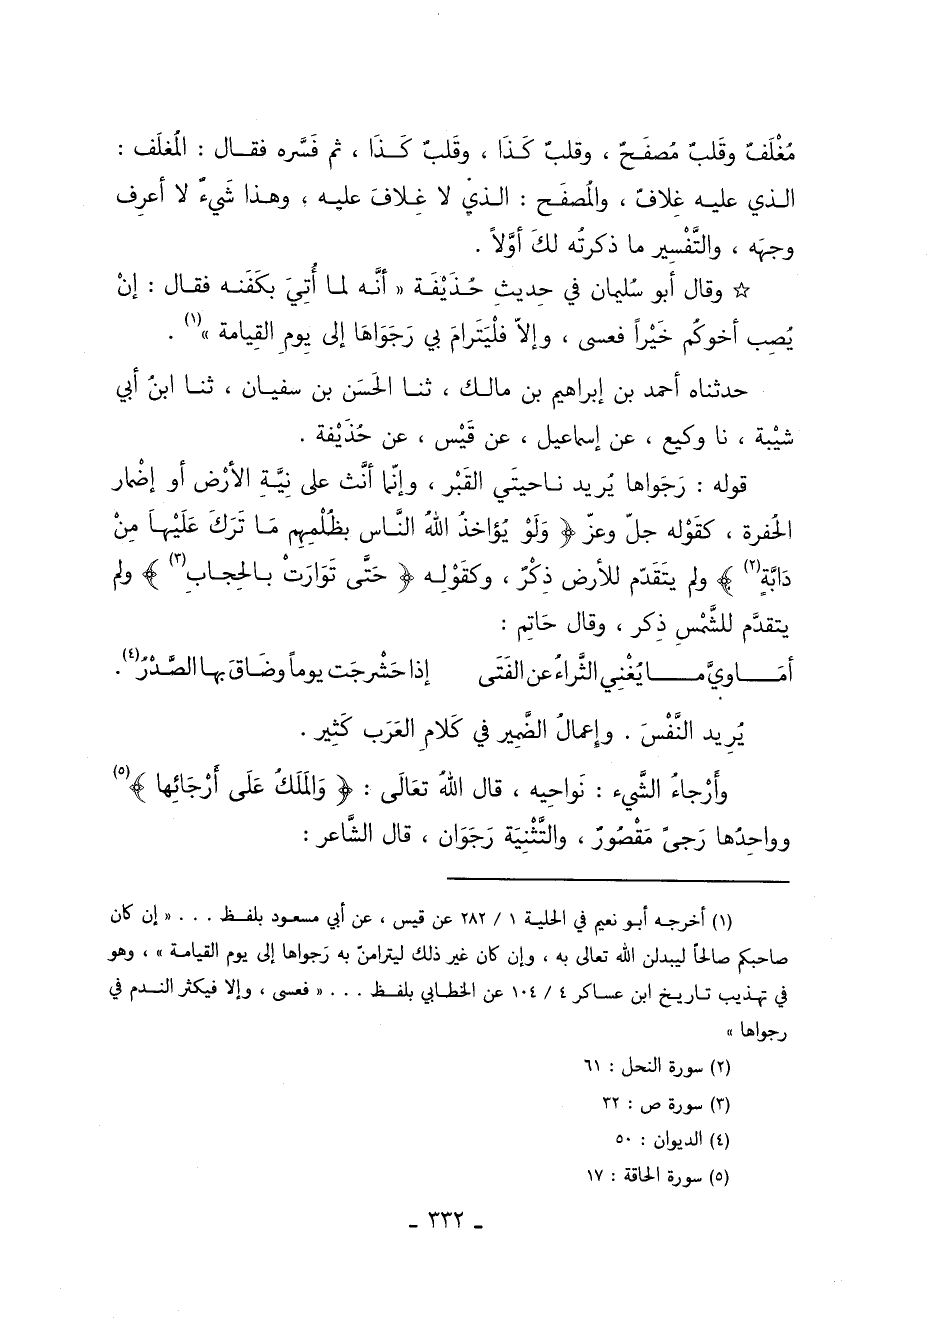 مُغْلَفٌ وقَلبٌ مُصفَحٌ ، وقلبٌ كَذَا ، وقَلبٌ كَذَا ، ثم فَسَّره فقال : المُغلَف :
الذي عليه غِلافٌ ، والمُصفَح : الذي لا غِلافَ عليه ، وهذا شَيءٌ لا أعرف
وجهَه ، والتَّفْسِير ما ذكرتُه لكَ أوَّلاً .
☆ وقال أبو سُليمان في حديثِ حُذَيْفَة « أنَّه لما أُتِيَ بكَفَنه فقال : إنْ
يُصِب أخوكُم خَيْراً فعسى ، وإلاّ فلْيَترامَ بي رَجَوَاهَا إلى يومِ القيامة »(١) .
حدثناه أحمد بن إبراهيم بن مالك ، ثنا الحَسَن بن سفيان ، ثنا ابنُ أبي
شَيْبة ، نا وكيع ، عن إسماعيل ، عن قَيْس ، عن حُذَيْفة .
قوله : رَجَواها يُريد ناحيتَي القَبْر ، وإنّما أنَّث على نِيَّةِ الأرْض أو إضْمار
الحُفرة ، كقَوْله جلّ وعزّ ﴿ وَلَوْ يُؤاخذُ اللهُ النَّاس بظُلْمِهم مَا تَرَكَ عَلَيْهَا مِنْ
دَابَّةٍ(٢) ﴾ ولم يتَقَدّم للأرض ذِكْرٌ ، وكقَوْلِه ﴿ حَتَّى تَوَارَتْ بالحِجاب(٣) ﴾ ولم
يتقدَّم للشَّمْسِ ذِكر ، وقال حَاتِم :
أمَاوِيَّ ما يُغْنِي الثَّراءُ عن الفَتَى إذا حَشْرجَت يوماً وضَاقَ بها الصَّدْرُ(٤) .
يُرِيد النَّفْسَ . وإعمالُ الضَّمِير في كَلام العَرَب كَثِير .
وأَرْجاءُ الشَّيء : نَواحيه ، قال اللهُ تعَالَى : ﴿ وَالمَلَكُ عَلَى أَرْجَائِها ﴾(٥)
وواحِدُها رَجىً مَقْصُورٌ ، والتَّثْنِيَة رَجَوَان ، قال الشَّاعر :
(١) أخرجه أبو نعيم في الحلية ١ / ٢٨٢ عن قيس ، عن أبي مسعود بلفظ . . . « إن كان
صاحبكم صالحاً ليبدلن الله تعالى به ، وإن كان غير ذلك ليترامنّ به رَجواها إلى يوم القيامة » ، وهو
في تهذيب تاريخ ابن عساكر ٤ / ١٠٤ عن الخطابي بلفظ . . . « فعسى ، وإلا فيكثر الندم في
رجواها »
(٢) سورة النحل : ٦١
(٣) سورة ص : ٣٢
(٤) الديوان : ٥٠
(٥) سورة الحاقة : ١٧
- ٣٣٢ -